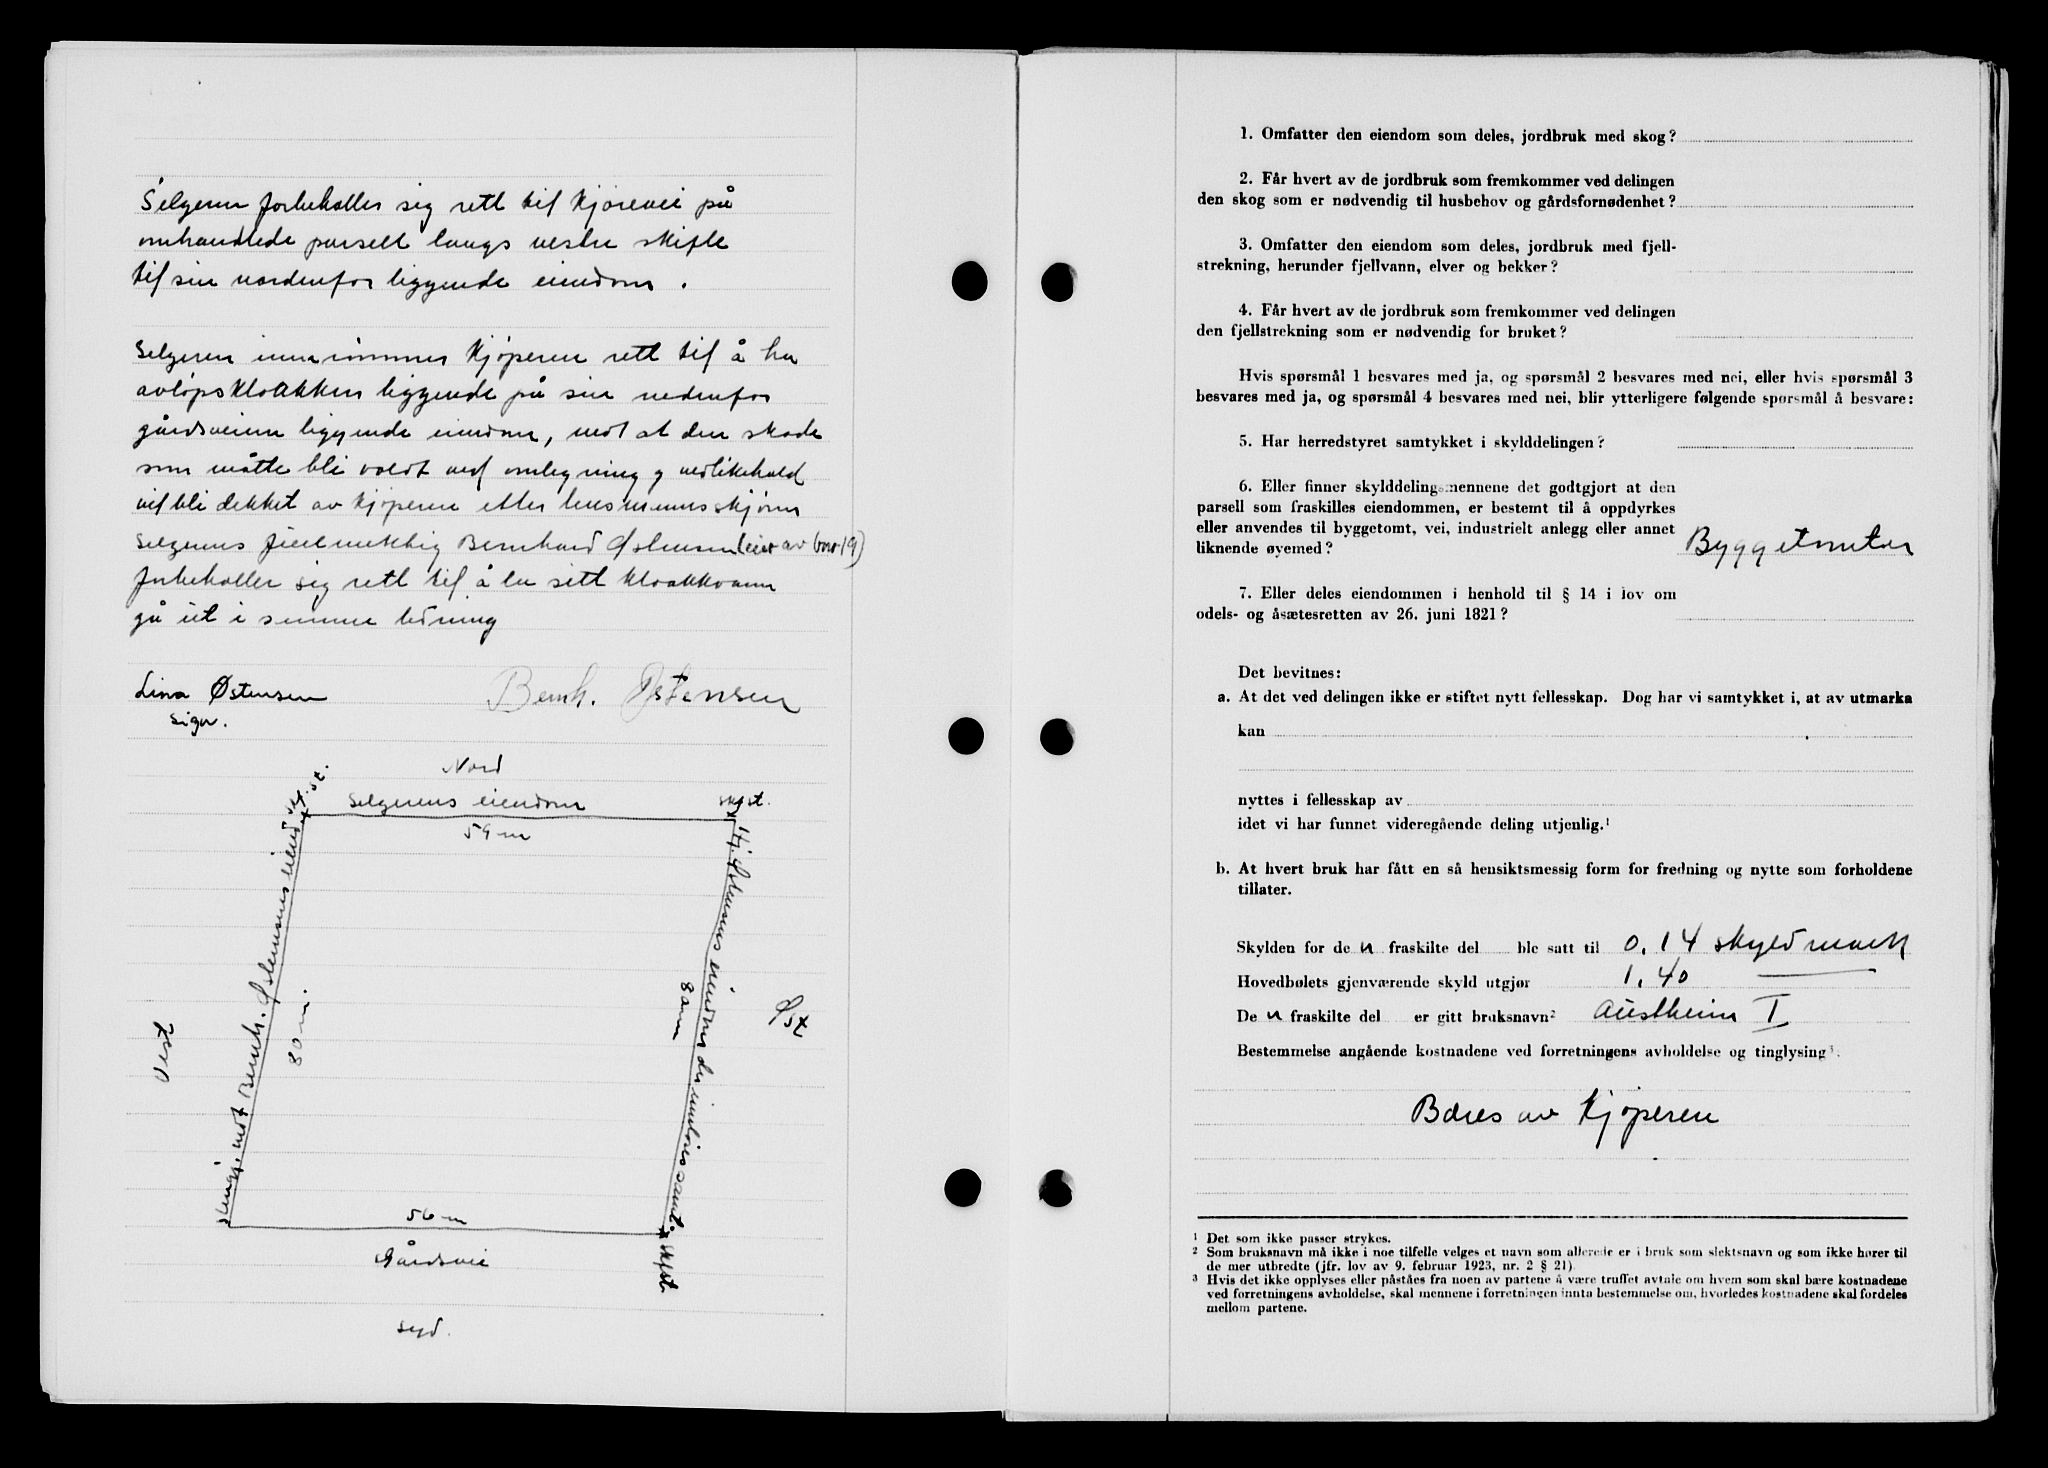 Selgeren forbeholder sig rett til kjørevei på
omhandlede parsell langs vestre skifte
til sin nordenfor liggende eiendom.
Selgeren innrømmer kjøperen rett til å ha
avløpskloakken liggende på sin nedenfor
gårdsveien liggende eiendom, mot at den skade
som måtte bli voldt ved omlegning og vedlikehold
vil bli dekket av kjøperen etter lensmannsskjønn
Selgerens fullmektig Bernhard Østensen (eier av bnr 19)
forbeholder sig rett til å la sitt kloakkvann
gå ut i samme ledning
Lina Østensen
sign.
Bernh. Østensen
Nord
Selgerens eiendom
skj. st.
skj. st.
59 m
mot Bernh. Østensens eiend
80 m
Østensens eiendom
80 m
Vest
Øst
56 m
Gårdsvei
skj.st.
syd.
1. Omfatter den eiendom som deles, jordbruk med skog?
2. Får hvert av de jordbruk som fremkommer ved delingen
den skog som er nødvendig til husbehov og gårdsfornødenhet?
3. Omfatter den eiendom som deles, jordbruk med fjell-
strekning, herunder fjellvann, elver og bekker?
4. Får hvert av de jordbruk som fremkommer ved delingen
den fjellstrekning som er nødvendig for bruket?
Hvis spørsmål 1 besvares med ja, og spørsmål 2 besvares med nei, eller hvis spørsmål 3
besvares med ja, og spørsmål 4 besvares med nei, blir ytterligere følgende spørsmål å besvare:
5. Har herredstyret samtykket i skylddelingen?
6. Eller finner skylddelingsmennene det godtgjort at den
parsell som fraskilles eiendommen, er bestemt til å oppdyrkes
eller anvendes til byggetomt, vei, industrielt anlegg eller annet
liknende øyemed? Byggetomter
7. Eller deles eiendommen i henhold til § 14 i lov om
odels- og åsætesretten av 26. juni 1821?
Det bevitnes:
a. At det ved delingen ikke er stiftet nytt fellesskap. Dog har vi samtykket i, at av utmarka
kan
nyttes i fellesskap av
idet vi har funnet videregående deling utjenlig.¹
b. At hvert bruk har fått en så hensiktsmessig form for fredning og nytte som forholdene
tillater.
Skylden for de n fraskilte del ble satt til 0.14 skyldmark
Hovedbølets gjenværende skyld utgjør 1.40
De n fraskilte del er gitt bruksnavn² Austheim I
Bestemmelse angående kostnadene ved forretningens avholdelse og tinglysing³.
Bæres av kjøperen
¹ Det som ikke passer strykes.
² Som bruksnavn må ikke i noe tilfelle velges et navn som allerede er i bruk som slektsnavn og som ikke hører til
de mer utbredte (jfr. lov av 9. februar 1923, nr. 2 § 21).
³ Hvis det ikke opplyses eller påståes fra noen av partene å være truffet avtale om hvem som skal bære kostnadene
ved forretningens avholdelse, skal mennene i forretningen innta bestemmelse om, hvorledes kostnadene skal fordeles
mellom partene.